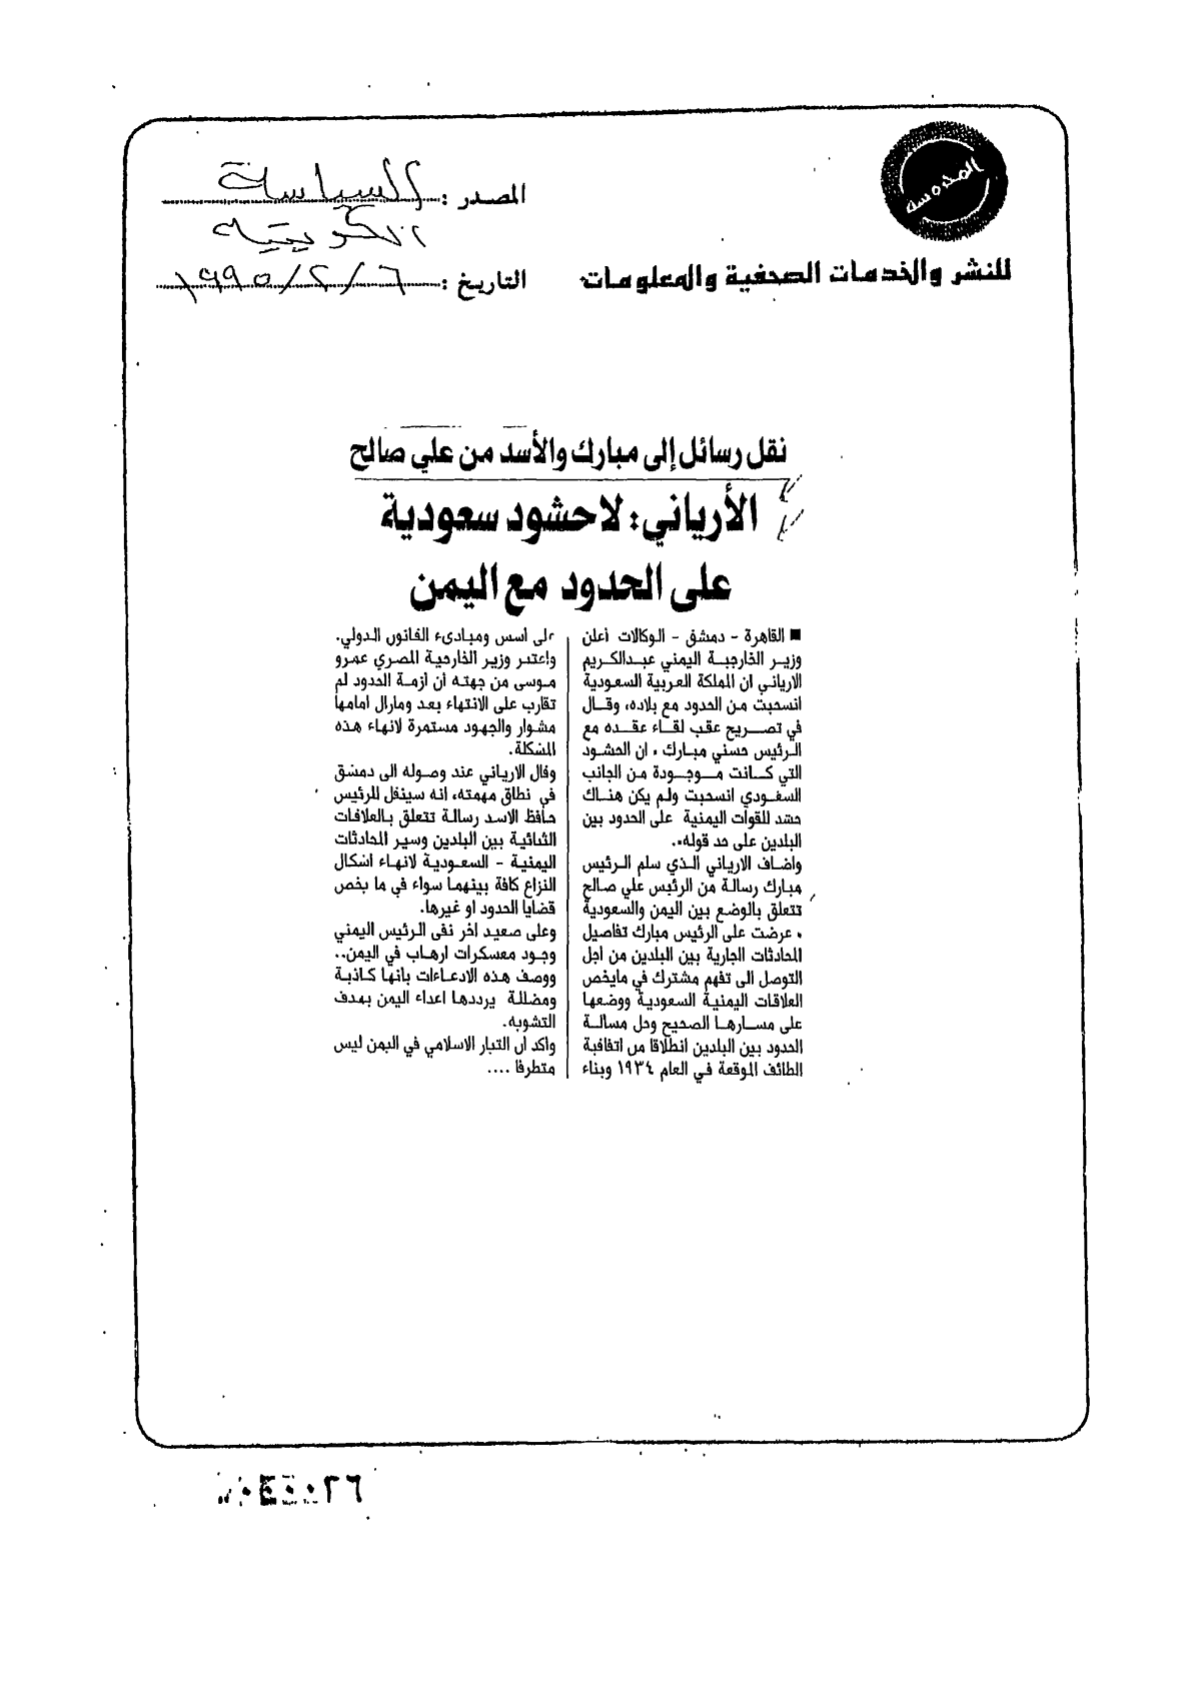 المحروسة
للنشر والخدمات الصحفية والمعلومات
المصدر : السياسة
الكويتية
التاريخ : ٦ / ٢ / ١٩٩٥
نقل رسائل إلى مبارك والأسد من علي صالح
الأرياني: لا حشود سعودية
على الحدود مع اليمن
■ القاهرة - دمشق - الوكالات أعلن
وزير الخارجية اليمني عبدالكريم
الارياني ان المملكة العربية السعودية
انسحبت من الحدود مع بلاده، وقال
في تصريح عقب لقاء عقده مع
الرئيس حسني مبارك ، ان الحشود
التي كانت موجودة من الجانب
السعودي انسحبت ولم يكن هناك
حشد للقوات اليمنية على الحدود بين
البلدين على حد قوله..
واضاف الارياني الذي سلم الرئيس
مبارك رسالة من الرئيس علي صالح
تتعلق بالوضع بين اليمن والسعودية
، عرضت على الرئيس مبارك تفاصيل
المحادثات الجارية بين البلدين من اجل
التوصل الى تفهم مشترك في مايخص
العلاقات اليمنية السعودية ووضعها
على مسارها الصحيح وحل مسالة
الحدود بين البلدين انطلاقا من اتفاقية
الطائف الموقعة في العام ١٩٣٤ وبناء
على اسس ومبادىء القانون الدولي.
واعتبر وزير الخارجية المصري عمرو
موسى من جهته أن ازمة الحدود لم
تقارب على الانتهاء بعد ومازال امامها
مشوار والجهود مستمرة لانهاء هذه
المشكلة.
وقال الارياني عند وصوله الى دمشق
في نطاق مهمته، انه سينقل للرئيس
حافظ الاسد رسالة تتعلق بالعلاقات
الثنائية بين البلدين وسير المحادثات
اليمنية - السعودية لانهاء اشكال
النزاع كافة بينهما سواء في ما يخص
قضايا الحدود او غيرها.
وعلى صعيد اخر نفى الرئيس اليمني
وجود معسكرات ارهاب في اليمن..
ووصف هذه الادعاءات بانها كاذبة
ومضللة يرددها اعداء اليمن بهدف
التشويه.
واكد ان التيار الاسلامي في اليمن ليس
متطرفا ....